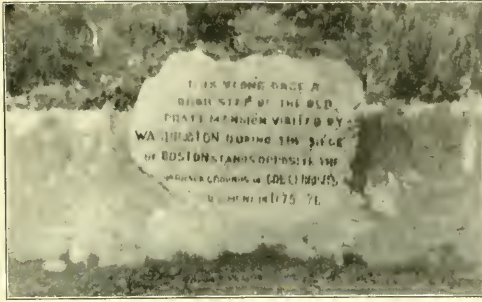 THIS STONE ONCE A
DOOR STEP OF THE OLD
MANSION VISITED BY
WASHINGTON DURING THE SIEGE
OF BOSTON STANDS OPPOSITE THE
GROUNDS OF GREENE'S
IN 1775 76